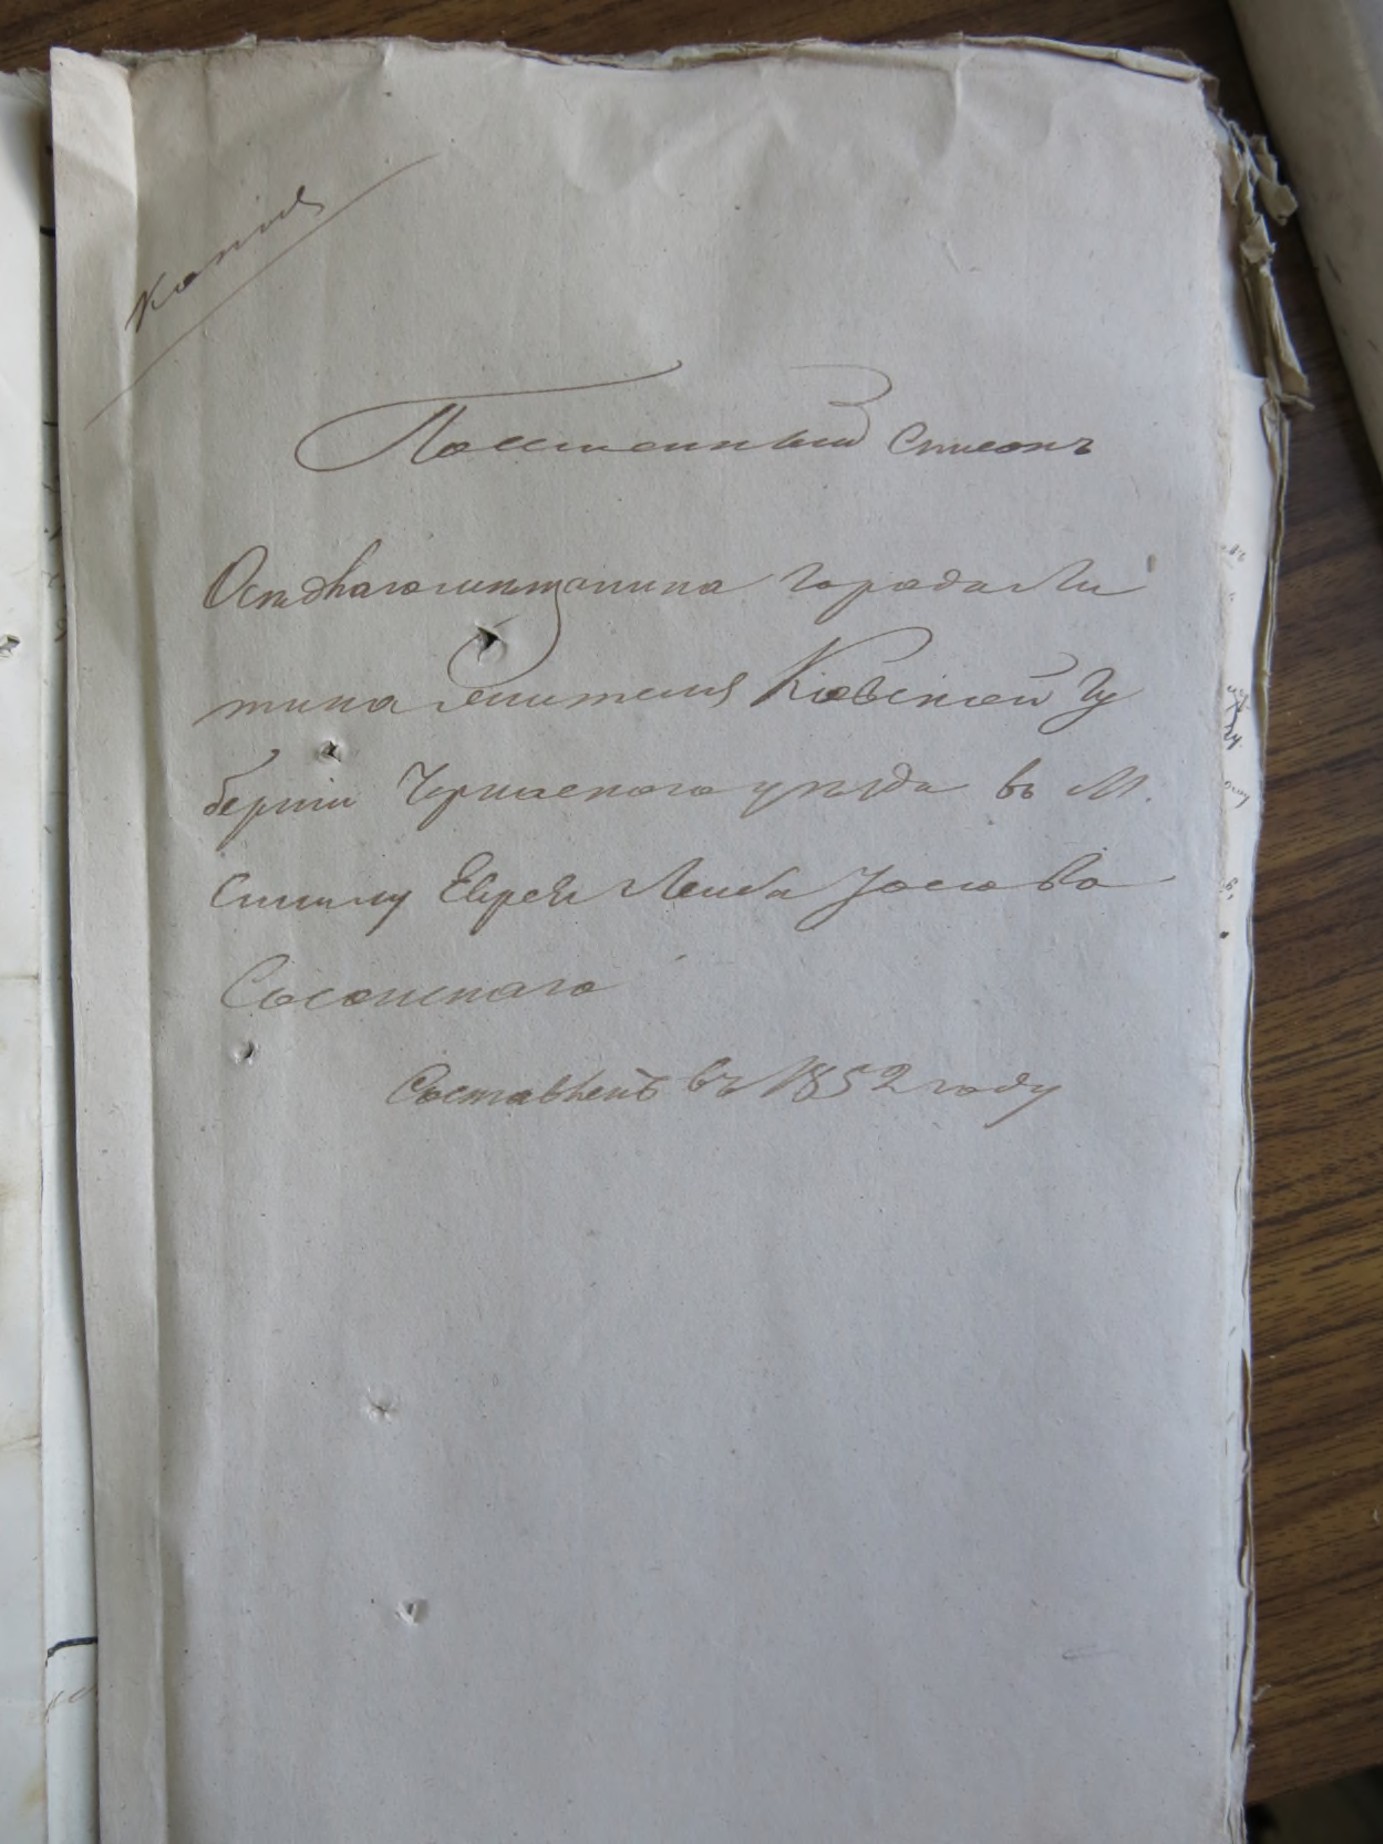 Копия
Посемейный Списокъ
Осѣдлаго мѣщанина города Ли
тина жителя Кіевской Гу
берніи Черкаского уѣзда въ М.
Смилу Еврея Лейба Іосіова
Сосонскаго
Составленъ въ 1852 году